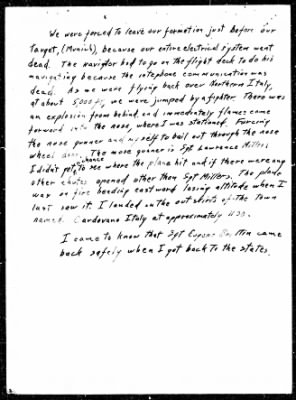 We were forced to leave our formation just before our
target, (Munich), because our entire electrical system went
dead. The navigator had to go on the flight deck to do his
navigating because the interphone communication was
dead. As we were flying back over Northern Italy,
at about 5000 ft, we were jumped by a fighter. There was
an explosion from behind and immediately flames came
forward into the nose, where I was stationed forcing
the nose gunner and myself to bail out through the nose
wheel door. The nose gunner is Sgt Lawrence Millers
I didn't get chance to see where the plane hit and if there were any
other chutes opened other then Sgt Millers. The plane
was on fire heading eastward losing altitude when I
last saw it. I landed on the outskirts of the town
named Cardovano Italy at approximately 1130.
I came to know that Sgt Eugene came
back safely when I got back to the states.